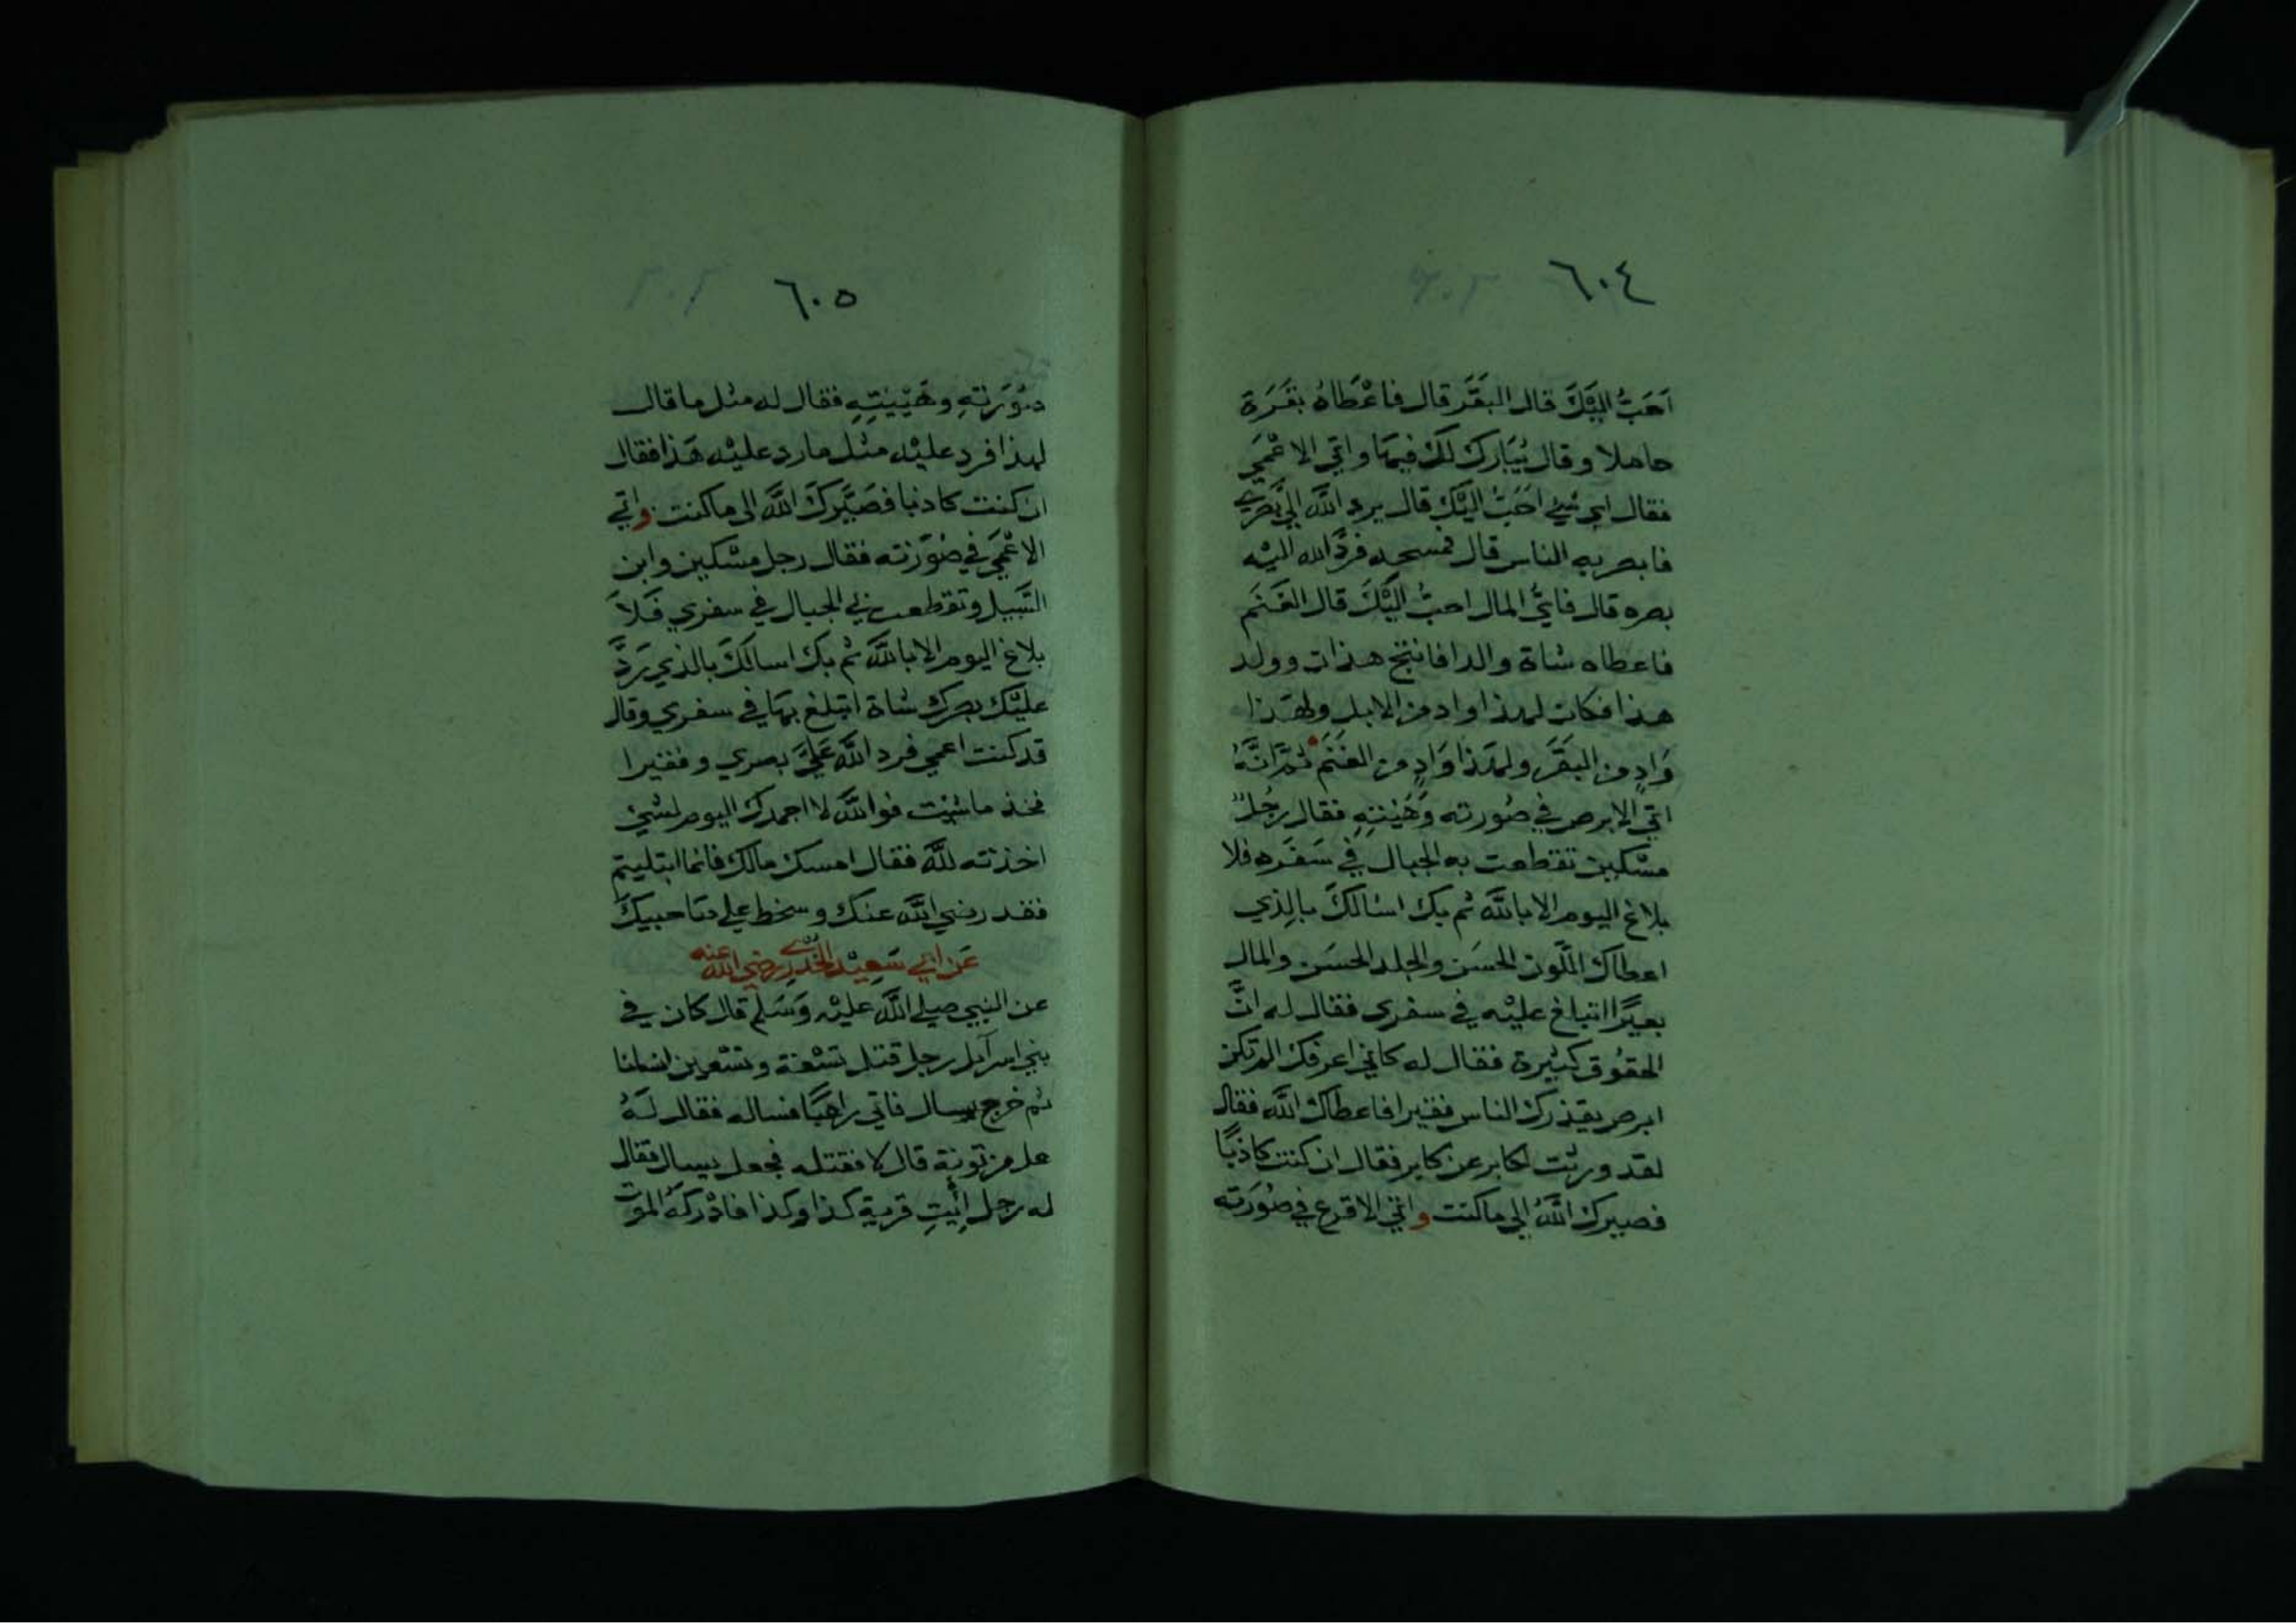 ٦٠٤
اَحَبُّ اِلَيْكَ قال البَقَر قال فاعْطَاهُ بقَرَة
حاملا وقال يُبَارك لَكَ فيهَا واتى الاعْمَى
فقال اي شئ احَبُّ اليْكَ قال يرد اللّٰه الي بَصَرِي
فابصر به الناس قال فمسحه فردَّ الله اليْه
بصره قال فايُّ المال احبُّ اليْكَ قال الغَنَم
فاعطاه شاة والدا فانتج هذان وولد
هذا فكان لهذا واد من الابل ولهَذا
وَادٍ من البَقَر ولهَذا وَادٍ من الغَنَم ثمّ انَّهُ
اتى الابرص في صُورته وَهَيْئتِهِ فقال رجُلٌ
مسْكين تقطعت به الجبال في سَفَره فلا
بلاغ اليوم الا باللّٰه ثم بك اسْالكَ بالذي
اعطاك اللّون الحسَن والجلد الحسَن والمال
بعيرًا اتبلغ عليْه في سفرى فقال له انَّ
الحقوُق كثيرة فقال له كانى اعرفك الم تكن
ابرص يقذرك الناس فقيرا فاعطاك اللّٰه فقال
لقد ورثت لكابر عن كابر فقال ان كنت كاذبًا
فصيرك اللّٰهُ الى ماكنت واتى الاقرع في صُورَته
٦٠٥
صُوَرتهِ وهَيْئتِهِ فقال له مثل ما قال
لهذا فرد عليْه مثل مارد عليْه هَذا فقال
ان كنت كاذبا فصَيَّرك اللّٰه الى ماكنت واتى
الاعْمَى في صُوَرته فقال رجل مسْكين وابن
السَّبيل وتقطعت بي الجبال في سفري فَلاَ
بلاغ اليوم الا باللّٰه ثم بك اسالكَ بالذي رَدَّ
عليْك بصرك شاة اتبلغ بهَا في سفري وقال
قد كنت اعمى فرد اللّٰه عَلَيَّ بصري وفقيرا
فخذ ما شئت فواللّٰه لا احمدك اليوم لشئ
اخذته للّٰه فقال امسك مالك فانما ابتليتم
فقد رضي اللّٰه عنك وسخط على صَاحبيكَ
عَن ابي سَعِيْد الخدْرِي رضي اللّٰه عنه
عن النبي صلى اللّٰه عليْه وَسَلم قال كان في
بني اسرآيل رجل قتل تسْعَة وتسْعين انسانا
ثم خرج يسال فاتى راهبًا فساله فقال لَهُ
هل من توبَة قال لا فقتله فجعل يسال فقال
له رجل اِئْتِ قرية كذا وكذا فادْركهُ الموْت